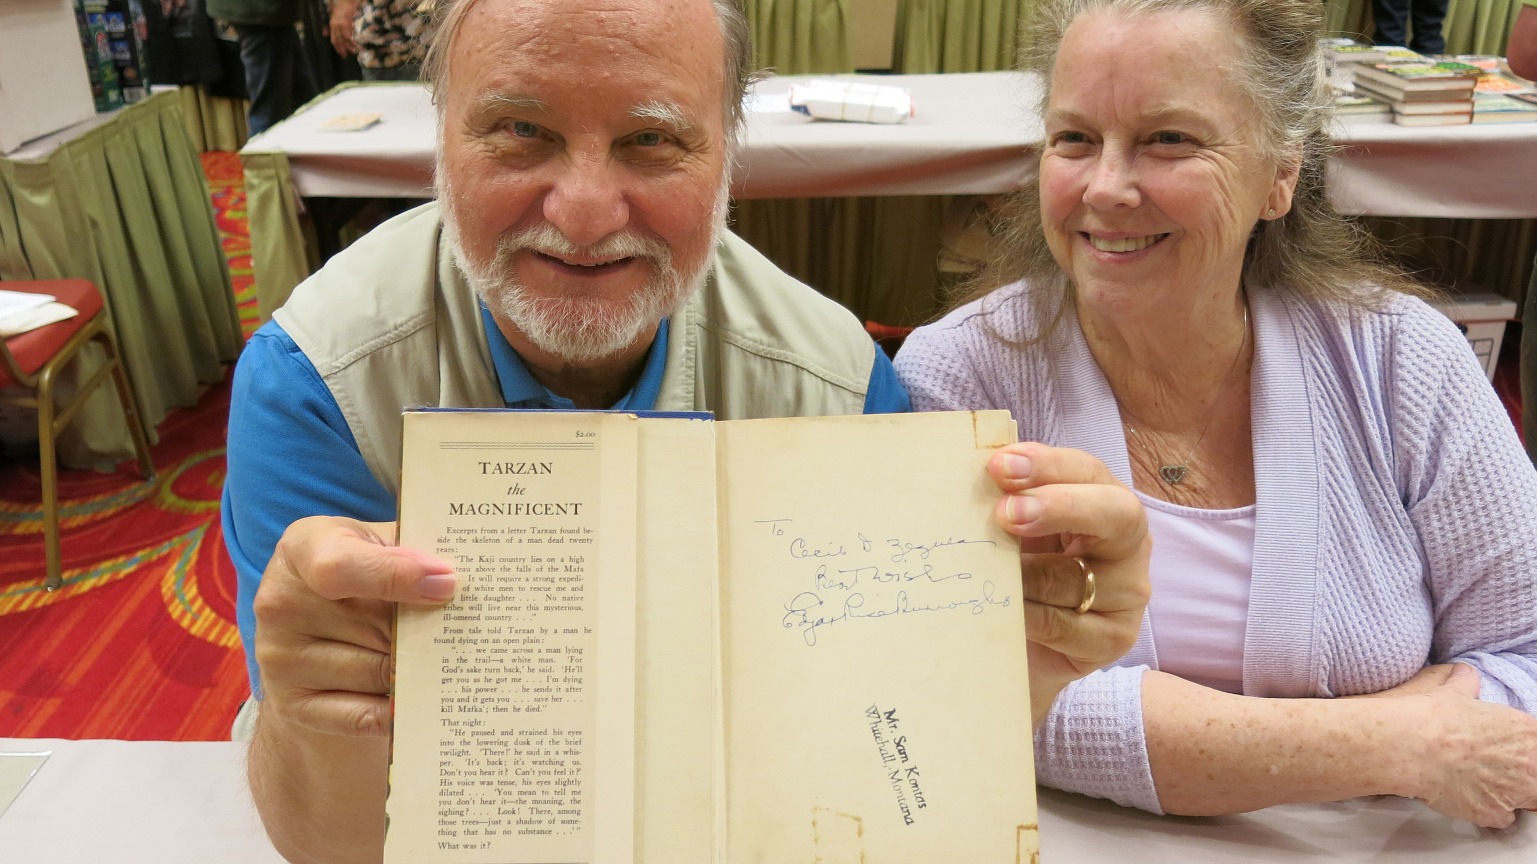 $2.00
TARZAN
the
MAGNIFICENT
Excerpts from a letter Tarzan found be-
side the skeleton of a man dead twenty
years:
"The Kaji country lies on a high
teau above the falls of the Mafa
It will require a strong expedi-
of white men to rescue me and
little daughter . . . No native
tribes will live near this mysterious,
ill-omened country . . ."
From tale told Tarzan by a man he
found dying on an open plain:
". . . we came across a man lying
in the trail—a white man. 'For
God's sake turn back,' he said. 'He'll
get you as he got me . . . I'm dying
. . . his power . . . he sends it after
you and it gets you . . . save her . . .
kill Mafka'; then he died."
That night:
"He paused and strained his eyes
into the lowering dusk of the brief
twilight. 'There!' he said in a whis-
per. 'It's back; it's watching us.
Don't you hear it? Can't you feel it?'
His voice was tense, his eyes slightly
dilated . . . 'You mean to tell me
you don't hear it—the moaning, the
sighing? . . . Look! There, among
those trees—just a shadow of some-
thing that has no substance . . .'"
What was it?
To
Cecil D
Best wishes
Edgar Rice Burroughs
Mr. Sam Kontas
Whitehall, Montana